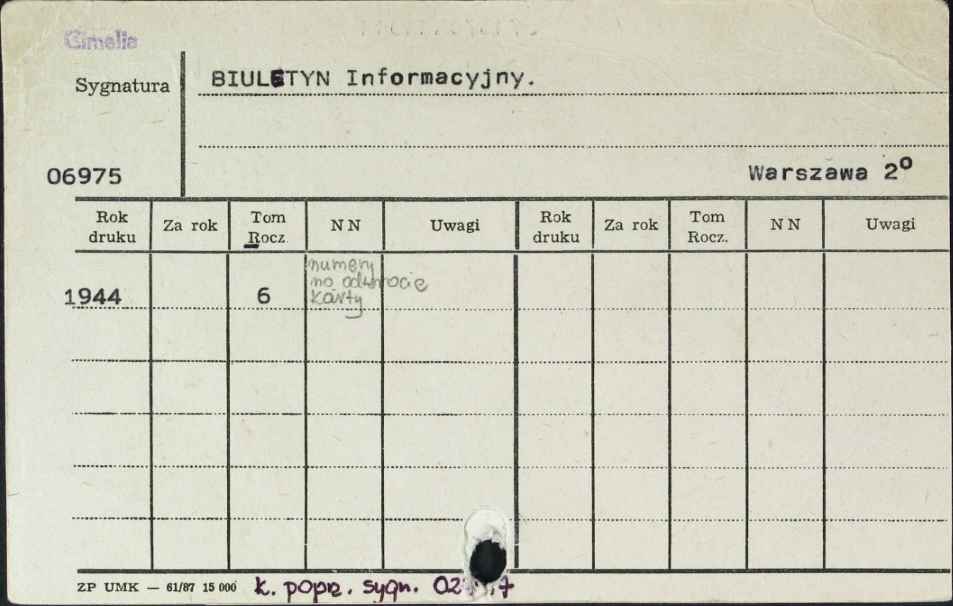 Cimelia
Sygnatura
BIULETYN Informacyjny.
06975
Warszawa 2º
Rok druku Za rok Tom Rocz. N N Uwagi Rok druku Za rok Tom Rocz. N N Uwagi
1944 6 numery na odwrocie karty
ZP UMK — 61/87 15 000 k. popr. sygn.